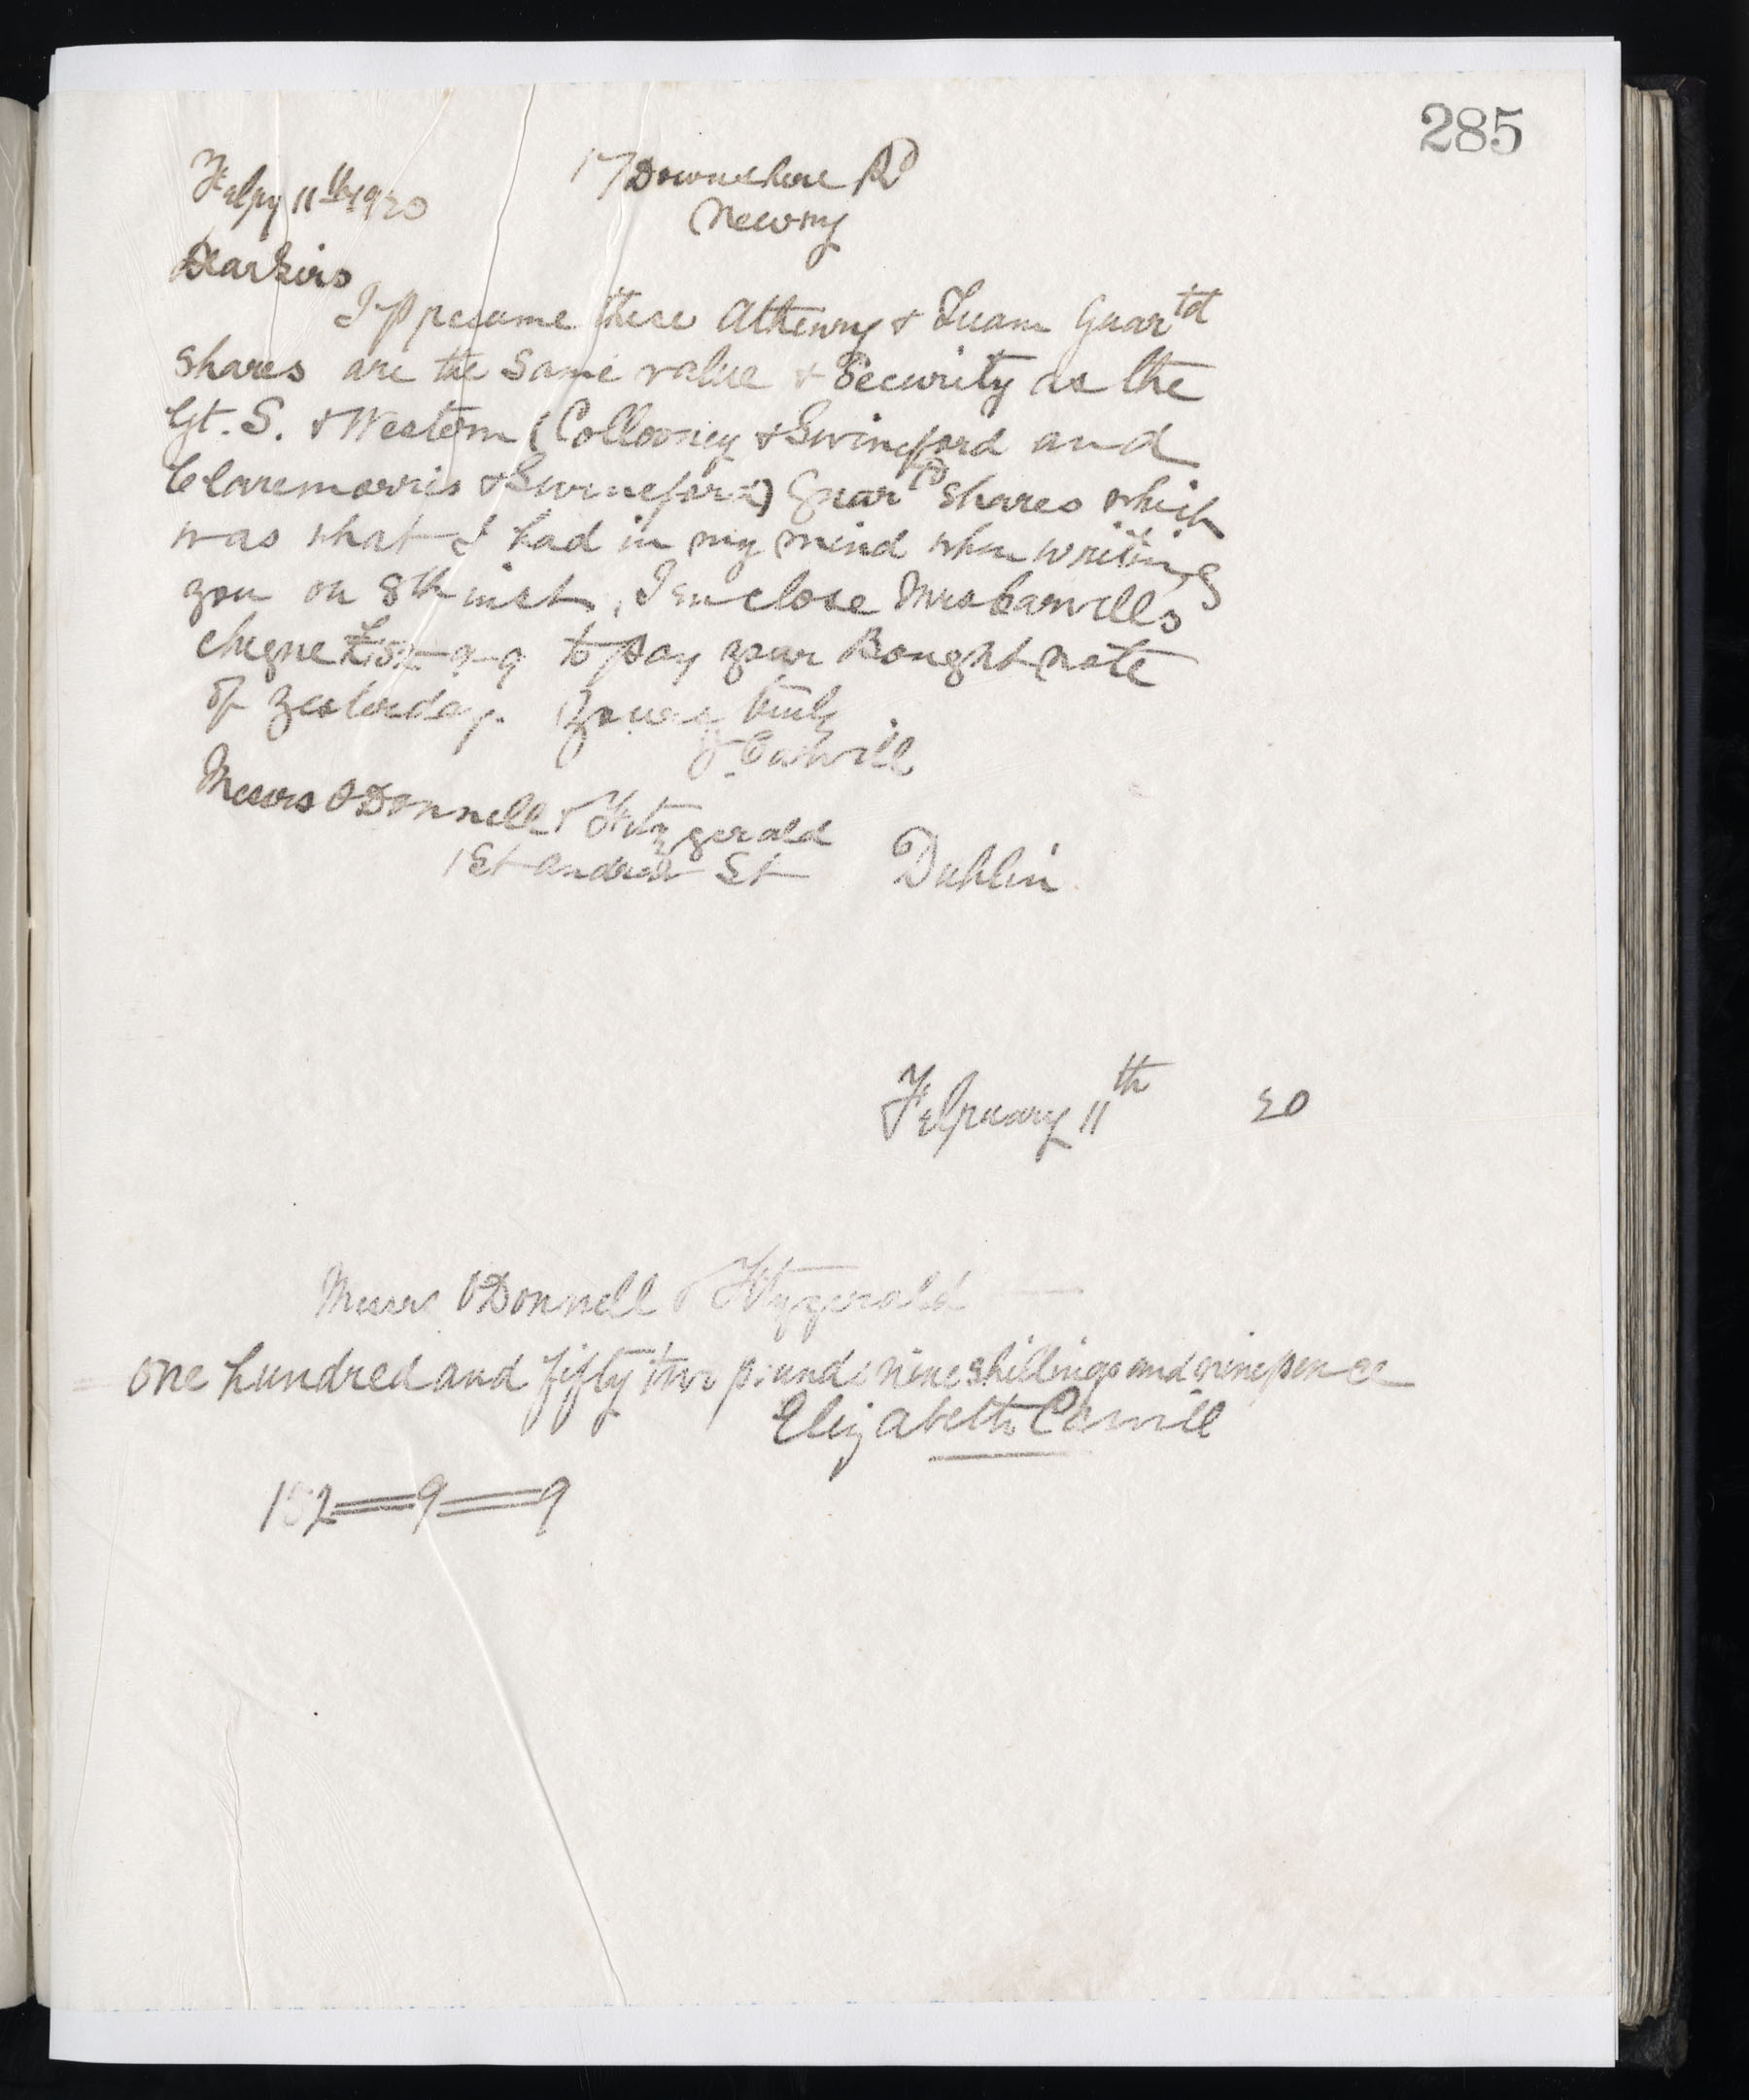 285
Febry 11th 1920
17 Downshire Rd
Newry
Dear Sirs
I presume these Athenry & Tuam Guartd
Shares are the same value & Security as the
Gt. S. & Western (Collooney & Swineford and
Claremorris & Swineford) Guartd Shares which
was what I had in my mind when writing
you on 8th inst, I enclose Mrs Carvills
cheque £152-9-9 to pay your Bought note
of yesterday. Yours truly
J Carvill
Messrs O'Donnell & Fitzgerald
1 St Andrew St Dublin
February 11th 20
Messrs O'Donnell & Fitzgerald
one hundred and fifty two pounds nine shillings and ninepence
Elizabeth Carvill
152=9=9